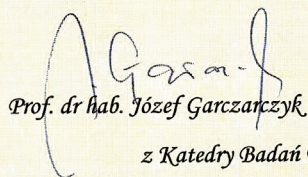 Prof. dr hab. Józef Garczarczyk
z Katedry Badań